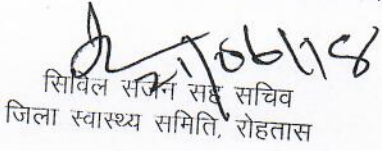 21/06/18
सिविल सर्जन सह सचिव
जिला स्वास्थ्य समिति, रोहतास